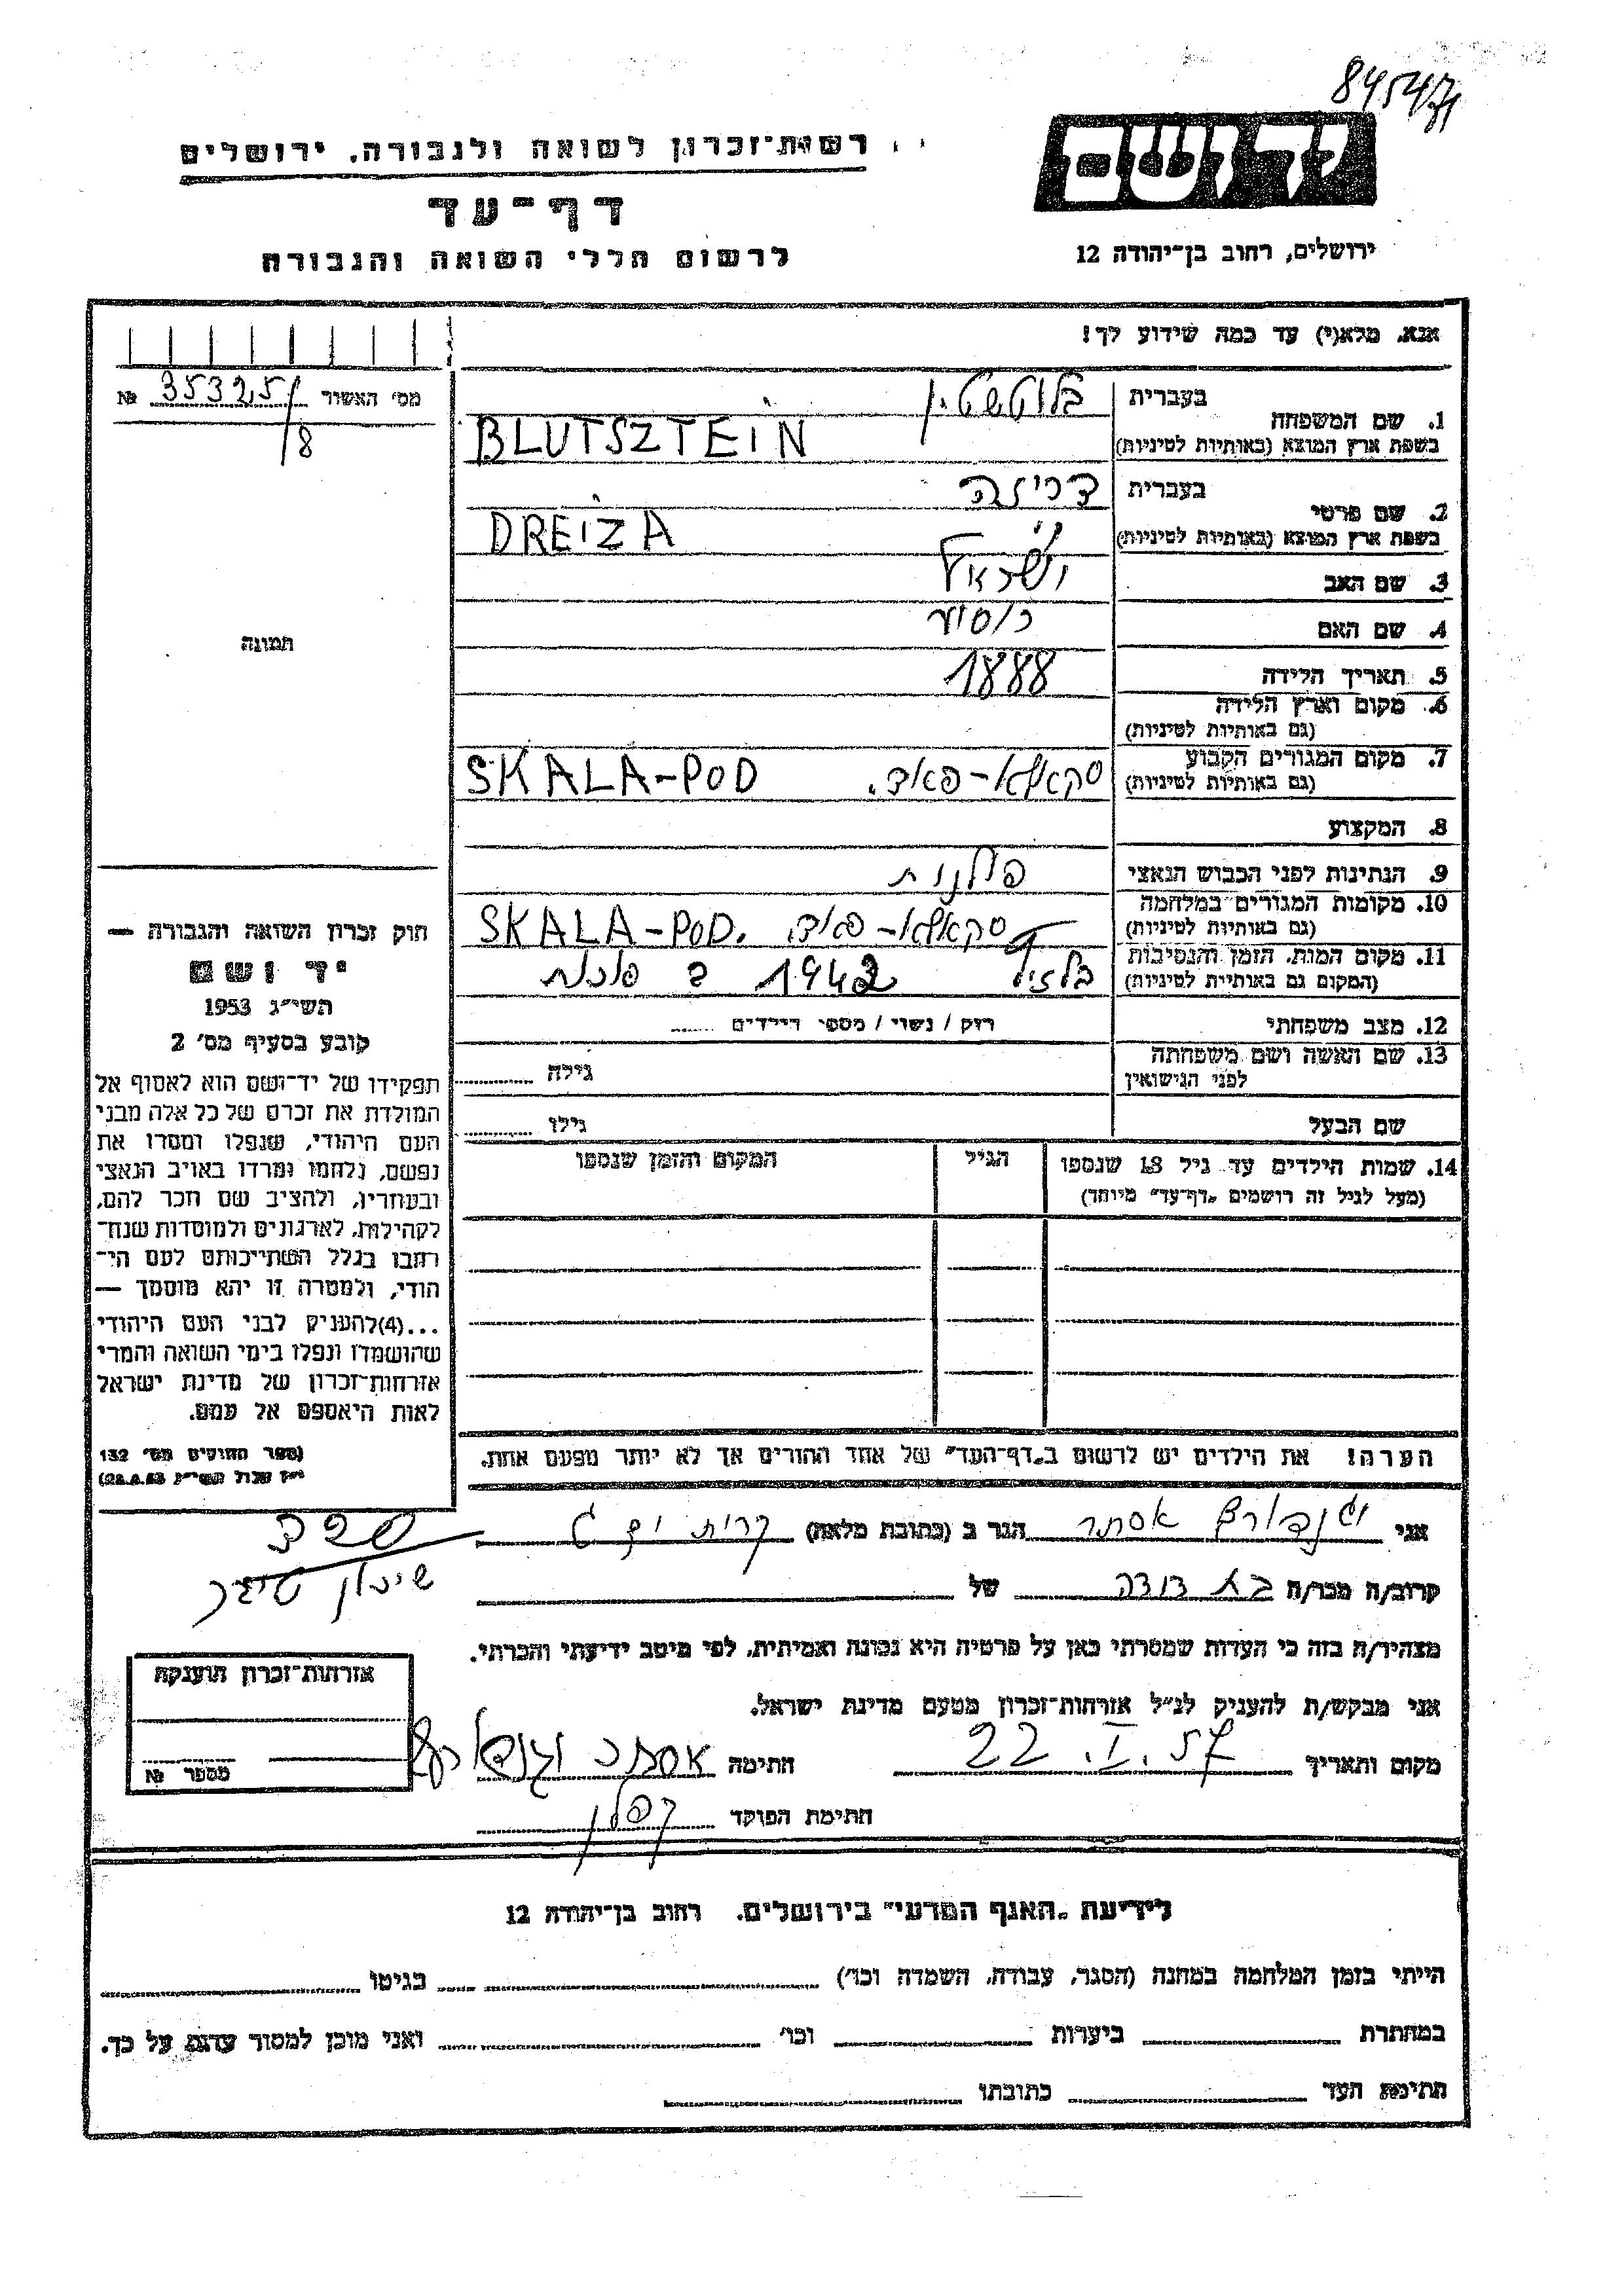 84547
רשות־זכרון לשואה ולגבורה, ירושלים
דף־עד
לרשום חללי השואה והגבורה
יד ושם
ירושלים, רחוב בן־יהודה 12
אנא, מלא(י) עד כמה שידוע לך!
מס' האשור 353251 №
8
תמונה
1. שם המשפחה
בעברית
בלוטשטין
בשפת ארץ המוצא (באותיות לטיניות)
BLUTSZTEIN
2. שם פרטי
בעברית
דריזה
בשפת ארץ המוצא (באותיות לטיניות)
DREIZA
3. שם האב ישראל
4. שם האם
5. תאריך הלידה 1888
6. מקום וארץ הלידה
(גם באותיות לטיניות)
7. מקום המגורים הקבוע
(גם באותיות לטיניות)
סקאלא-פאד. SKALA-POD
8. המקצוע
9. הנתינות לפני הכבוש הנאצי פולנית
10. מקומות המגורים במלחמה
(גם באותיות לטיניות)
סקאלא-פאד. SKALA-POD.
11. מקום המות, הזמן והנסיבות
(המקום גם באותיות לטיניות)
בלזץ 1942 ב
12. מצב משפחתי רוק / נשוי / מספר הילדים ......
13. שם האשה ושם משפחתה
לפני הנישואין
גילה
שם הבעל גילו
14. שמות הילדים עד גיל 18 שנספו
(מעל לגיל זה רושמים „דף־עד" מיוחד)
הגיל
המקום והזמן שנספו
חוק זכרון השואה והגבורה —
יד ושם
תשי"ג 1953
קובע בסעיף מס' 2
תפקידו של יד־ושם הוא לאסוף אל
המולדת את זכרם של כל אלה מבני
העם היהודי, שנפלו ומסרו את
נפשם, נלחמו ומרדו באויב הנאצי
ובעוזריו, ולהציב שם וזכר להם,
לקהילות, לארגונים ולמוסדות שנח־
רבו בגלל השתייכותם לעם הי־
הודי, ולמטרה זו יהא מוסמך —
...(4)להעניק לבני העם היהודי
שהושמדו ונפלו בימי השואה והמרי
אזרחות־זכרון של מדינת ישראל
לאות היאספם אל עמם.
(ספר החוקים מס' 132
י"ז אלול תשי"ג 28.8.53)
הערה! את הילדים יש לרשום ב„דף־העד" של אחד ההורים אך לא יותר מפעם אחת.
אני אסתר הגר ב (כתובת מלאה) קרית
שיכון
קרוב/ה מכר/ה בת דודה של
מצהיר/ה בזה כי העדות שמסרתי כאן על פרטיה היא נכונה ואמיתית, לפי מיטב ידיעתי והכרתי.
אני מבקש/ת להעניק לנ"ל אזרחות־זכרון מטעם מדינת ישראל.
מקום ותאריך 22.I.57 חתימה אסתר
חתימת הפוקד קפלן
אזרחות־זכרון הוענקה
מספר №
לידיעת „האגף המדעי" בירושלים, רחוב בן־יהודה 12
הייתי בזמן המלחמה במחנה (הסגר, עבודה, השמדה וכו') בגיטו
במחתרת ביערות וכו' ואני מוכן למסור עדות על כך.
חתימת העד כתובתו